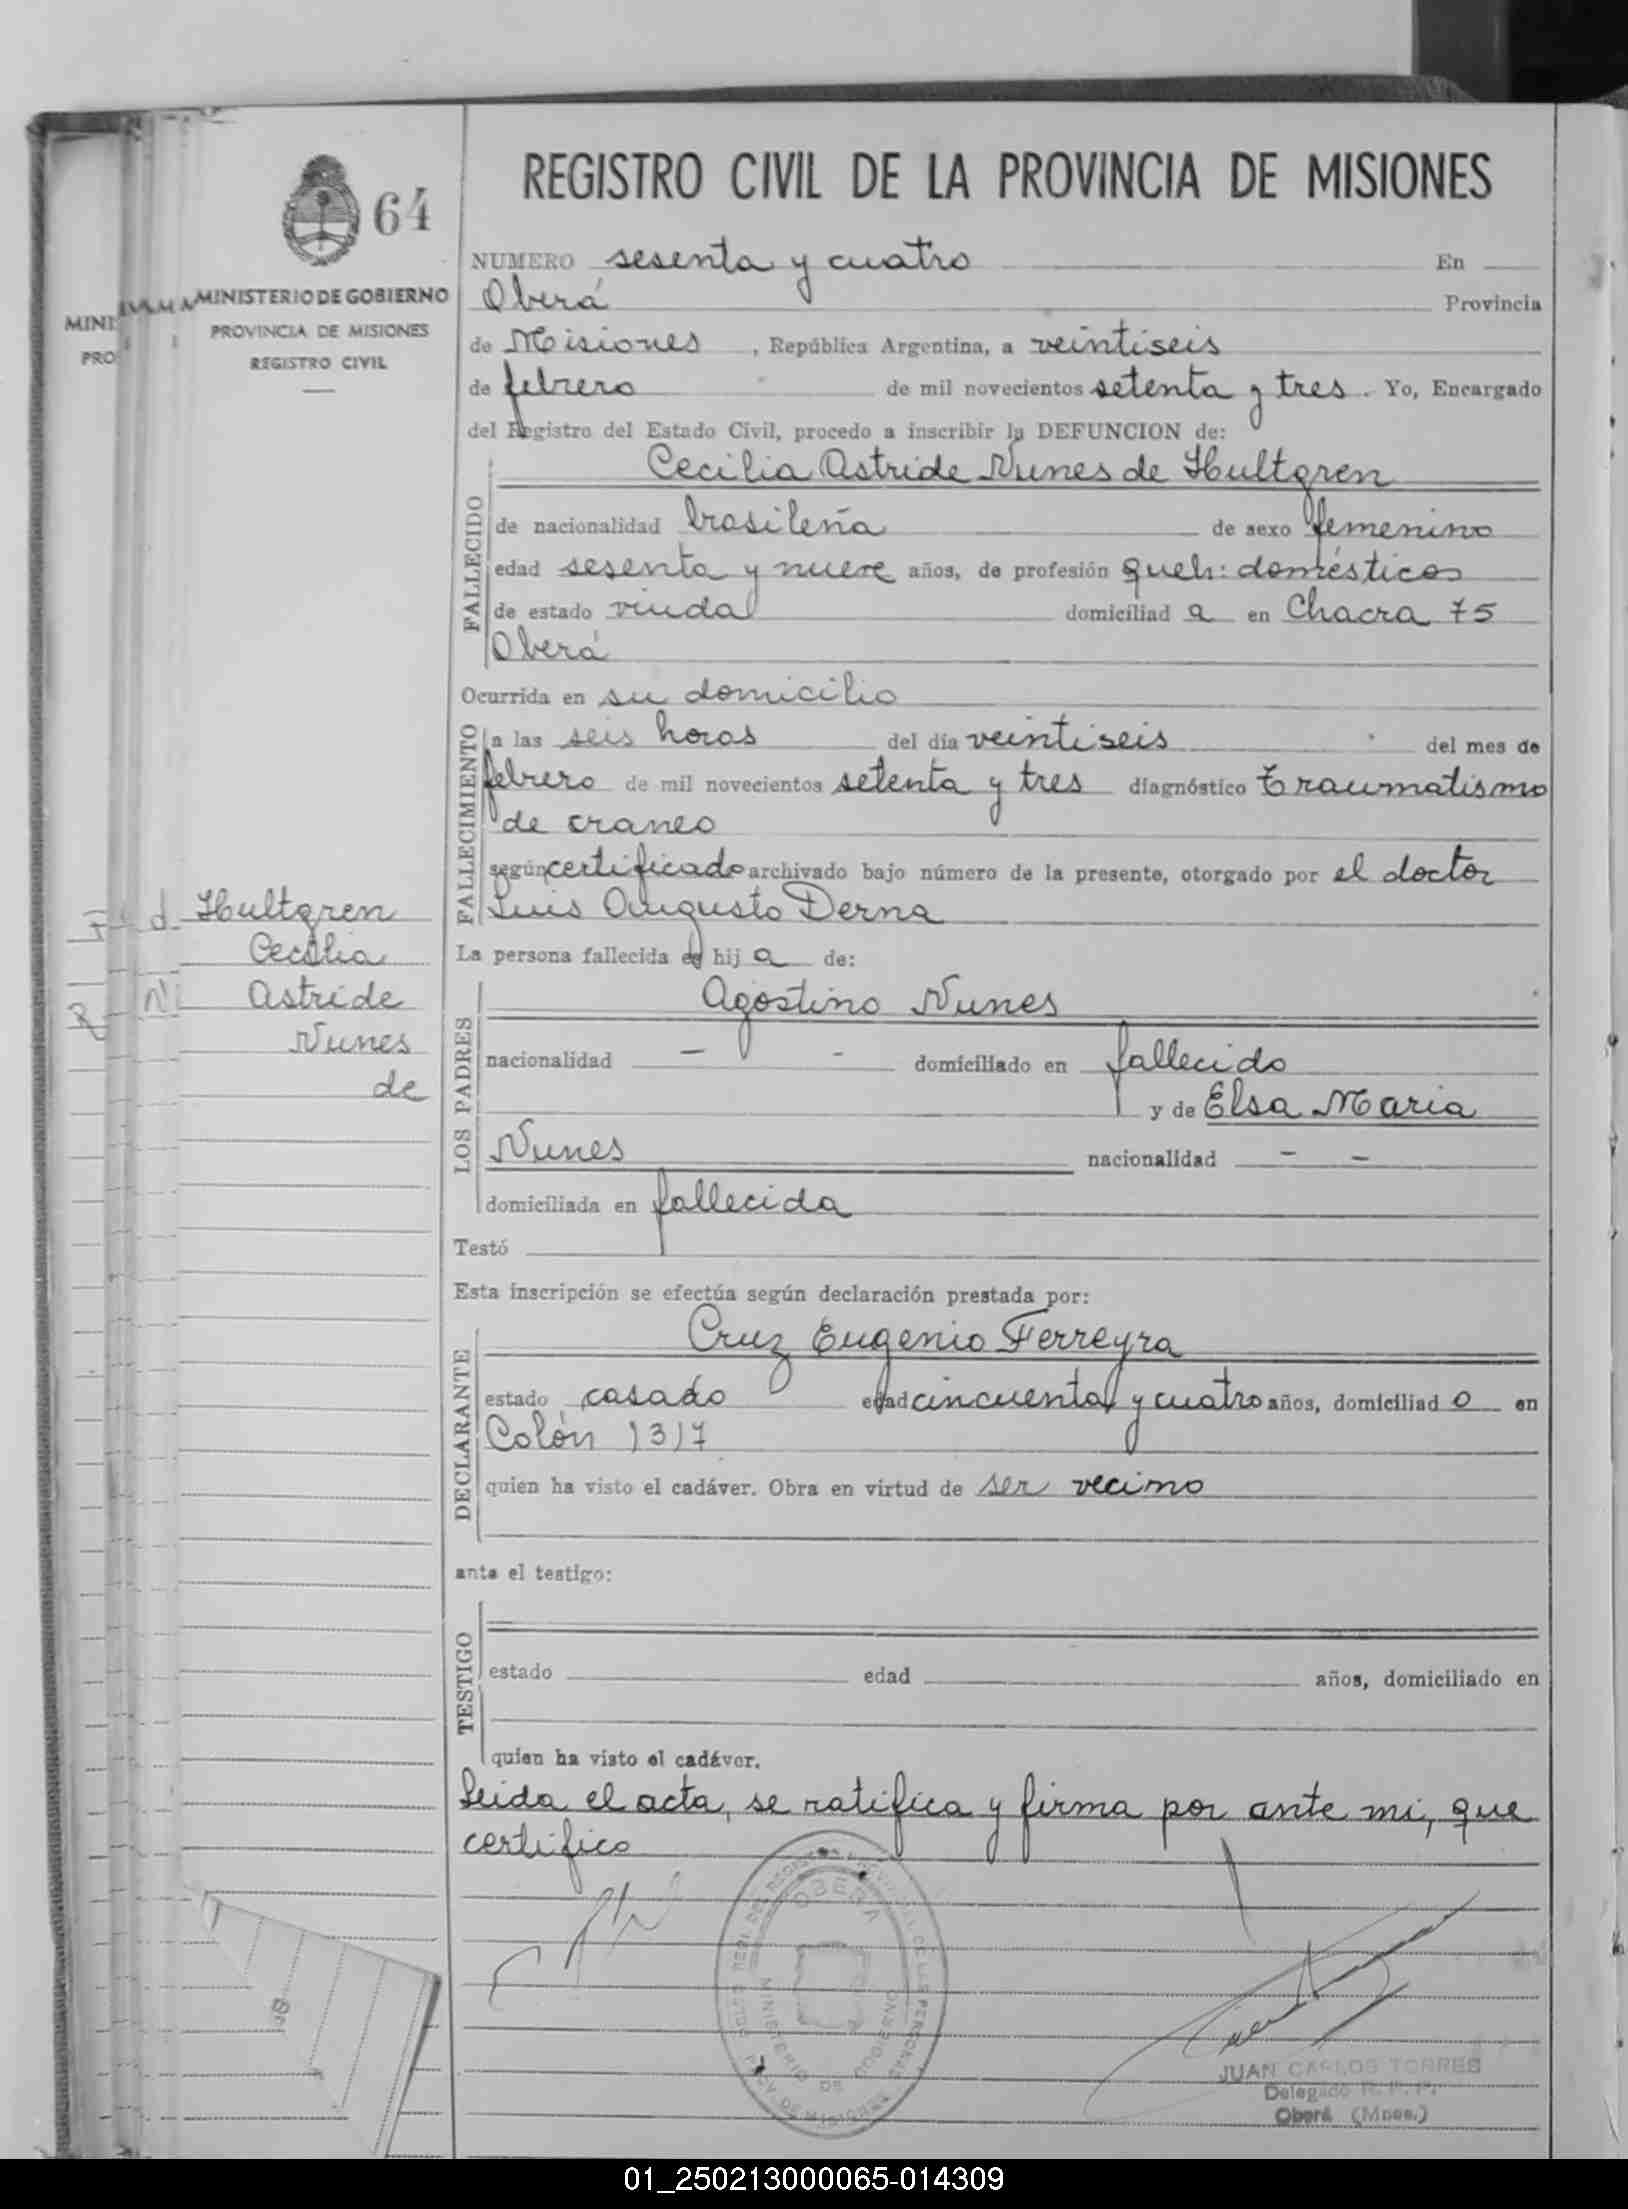 REGISTRO CIVIL DE LA PROVINCIA DE MISIONES
64
MINISTERIO DE GOBIERNO
PROVINCIA DE MISIONES
REGISTRO CIVIL
MINI
PRO
NUMERO sesenta y cuatro En
Oberá Provincia
de Misiones, República Argentina, a veintiseis
de febrero de mil novecientos setenta y tres. Yo, Encargado
del Registro del Estado Civil, procedo a inscribir la DEFUNCION de:
FALLECIDO
Cecilia Astride Nunes de Hultgren
de nacionalidad brasileña de sexo femenino
edad sesenta y nueve años, de profesión queh: domésticos
de estado viuda domiciliad a en Chacra 75
Oberá
Ocurrida en su domicilio
FALLECIMIENTO
a las seis horas del día veintiseis del mes de
febrero de mil novecientos setenta y tres diagnóstico Traumatismo
de craneo
según certificado archivado bajo número de la presente, otorgado por el doctor
Luis Augusto Derna
Hultgren
Cecilia
Astride
Nunes
de
La persona fallecida es hij a de:
LOS PADRES
Agostino Nunes
nacionalidad - - domiciliado en fallecido
y de Elsa Maria
Nunes nacionalidad - -
domiciliada en fallecida
Testó
Esta inscripción se efectúa según declaración prestada por:
DECLARANTE
Cruz Eugenio Ferreyra
estado casado edad cincuenta y cuatro años, domiciliad o en
Colón 1317
quien ha visto el cadáver. Obra en virtud de ser vecino
ante el testigo:
TESTIGO
estado edad años, domiciliado en
quien ha visto el cadáver.
Leida el acta, se ratifica y firma por ante mi, que
certifico
OBERA
MINISTERIO DE GOBIERNO
PROV. DE MISIONES
JUAN CARLOS TORRES
Delegado R. P. P.
Oberá (Mnes.)
01_250213000065-014309